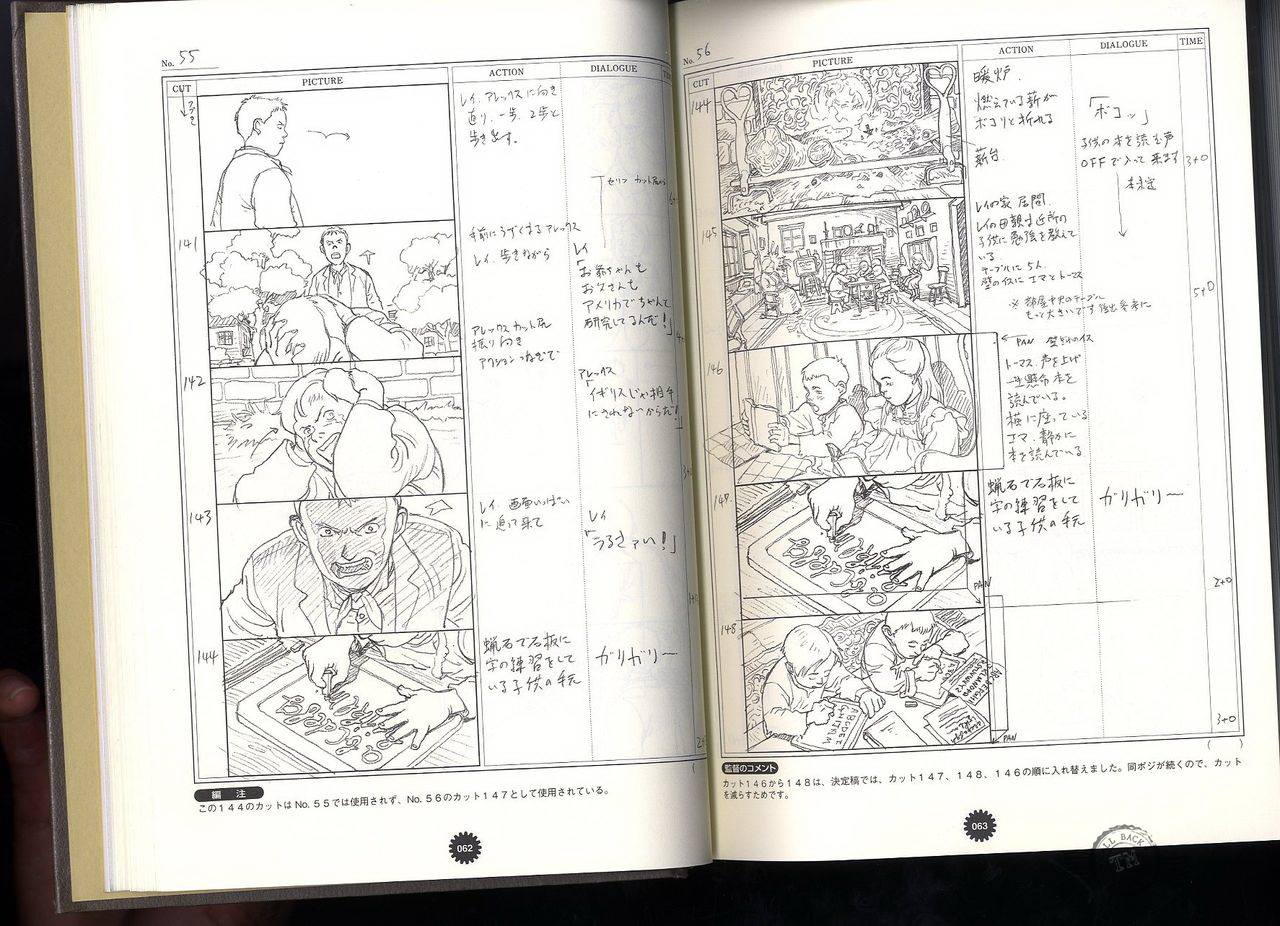 No. 55
CUT
PICTURE
ACTION
DIALOGUE
レイ、アレックスに向き
直り、一歩、2歩と
歩き出す。
セリフ カット尻から
141
手前にうずくまるアレックス
レイ、歩きながら
レイ
「お爺ちゃんも
お父さんも
アメリカでちゃんと
研究してるんだ!」
アレックス カット尻
振り向き
アクションつなぎで
142
アレックス
「イギリスじゃ相手
にされないからだ!」
143
レイ、画面いっぱい
に迫って来て
レイ
「うるさァい!」
144
蝋石で石板に
字の練習をして
いる子供の手元
ガリガリー
編 注
この144のカットは No. 55では使用されず、No. 56のカット147として使用されている。
062
No. 56
CUT
PICTURE
ACTION
DIALOGUE
TIME
144
暖炉.
燃えている薪が
ボコリと折れる
薪台.
「ボコッ」
子供の本を読む声
OFFで入って来ます
未定
3+0
145
レイの家 居間.
レイの母親は近所の
子供に勉強を教えて
いる
テーブルに5人
壁のイスにエマとトーマス
※ 部屋中央のテーブル
もっと大きいです
5+0
146
PAN
トーマス 声を上げ
一生懸命本を
読んでいる。
横に座っている
エマ、静かに
本を読んでいる
147
蝋石で石板に
字の練習をして
いる子供の手元
ガリガリー
2+0
PAN
148
ABCDEF
PAN
3+0
監督のコメント
カット146から148は、決定稿では、カット147、148、146の順に入れ替えました。同ポジが続くので、カット
を減らすためです。
063
LL BACK
TM